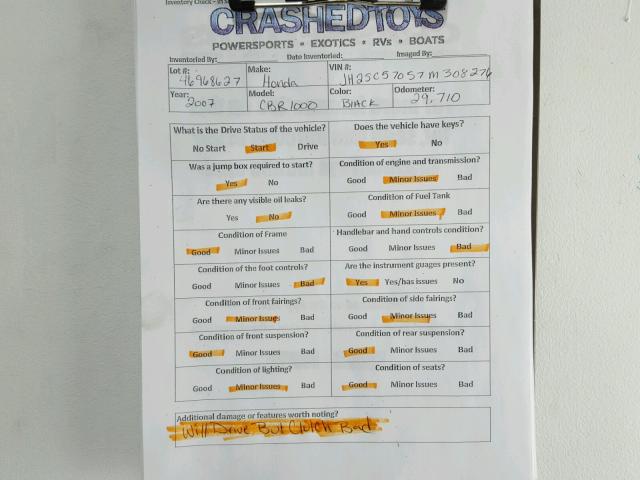 CRASHEDTOYS
POWERSPORTS • EXOTICS • RVs • BOATS
Inventoried By: Date Inventoried: Imaged By:
Lot #: 46968627 Make: Honda VIN #: JH2SC57057M308276
Year: 2007 Model: CBR1000 Color: Black Odometer: 29,710
What is the Drive Status of the vehicle? Does the vehicle have keys?
No Start Start Drive Yes No
Was a jump box required to start? Condition of engine and transmission?
Yes No Good Minor Issues Bad
Are there any visible oil leaks? Condition of Fuel Tank
Yes No Good Minor Issues Bad
Condition of Frame Handlebar and hand controls condition?
Good Minor Issues Bad Good Minor Issues Bad
Condition of the foot controls? Are the instrument guages present?
Good Minor Issues Bad Yes Yes/has issues No
Condition of front fairings? Condition of side fairings?
Good Minor Issues Bad Good Minor Issues Bad
Condition of front suspension? Condition of rear suspension?
Good Minor Issues Bad Good Minor Issues Bad
Condition of lighting? Condition of seats?
Good Minor Issues Bad Good Minor Issues Bad
Additional damage or features worth noting?
Will Drive But Clutch Bad